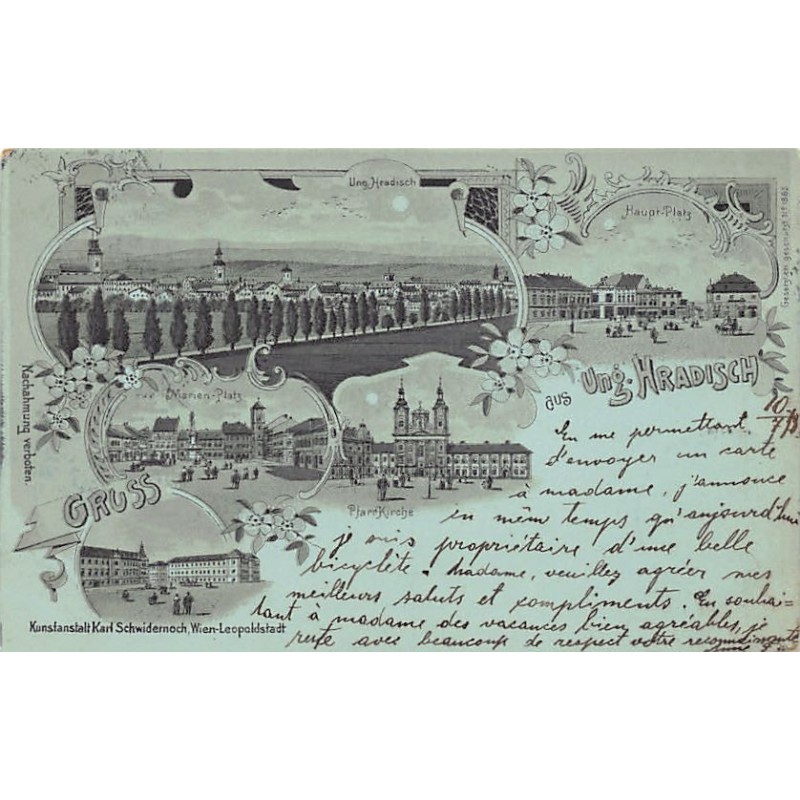 Ung. Hradisch
Haupt-Platz
Nachahmung verboten.
Marien-Platz
Pfarr Kirche
GRUSS
aus Ung. HRADISCH
Kunstanstalt Karl Schwidernoch, Wien-Leopoldstadt
10/7
En me permettant
d'envoyer un carte
à madame, j'annonce
en mêm temps qu'aujourd'hui
je suis propriétaire d'une belle
bicyclète. Madame, veuillez agréer mes
meilleurs saluts et compliments. En souhai=
tant à madame des vacances bien agréables, je
reste avec beaucoup de respect votre reconnaissante